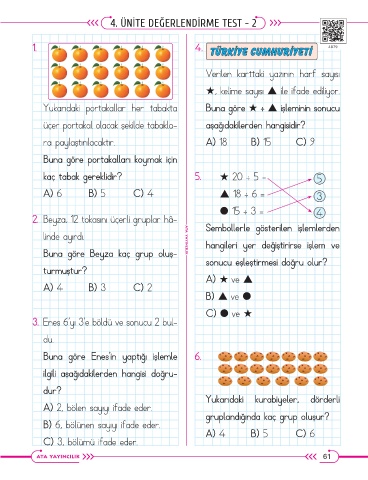 4. ÜNİTE DEĞERLENDİRME TEST - 2
2079
1.
Yukarıdaki portakallar her tabakta
üçer portakal olacak şekilde tabakla-
ra paylaştırılacaktır.
Buna göre portakalları koymak için
kaç tabak gereklidir?
A) 6 B) 5 C) 4
2. Beyza, 12 tokasını üçerli gruplar hâ-
linde ayırdı.
Buna göre Beyza kaç grup oluş-
turmuştur?
A) 4 B) 3 C) 2
3. Enes 6'yı 3'e böldü ve sonucu 2 bul-
du.
Buna göre Enes'in yaptığı işlemle
ilgili aşağıdakilerden hangisi doğru-
dur?
A) 2, bölen sayıyı ifade eder.
B) 6, bölünen sayıyı ifade eder.
C) 3, bölümü ifade eder.
ATA YAYINCILIK
4.
TÜRKİYE CUMHURİYETİ
Verilen karttaki yazının harf sayısı
★, kelime sayısı ▲ ile ifade ediliyor.
Buna göre ★ ÷ ▲ işleminin sonucu
aşağıdakilerden hangisidir?
A) 18 B) 15 C) 9
5. ★ 20 ÷ 5 = 5
▲ 18 ÷ 6 = 3
● 15 ÷ 3 = 4
Sembollerle gösterilen işlemlerden
hangileri yer değiştirirse işlem ve
sonucu eşleştirmesi doğru olur?
A) ★ ve ▲
B) ▲ ve ●
C) ● ve ★
6.
Yukarıdaki kurabiyeler, dörderli
gruplandığında kaç grup oluşur?
A) 4 B) 5 C) 6
ATA YAYINCILIK
61